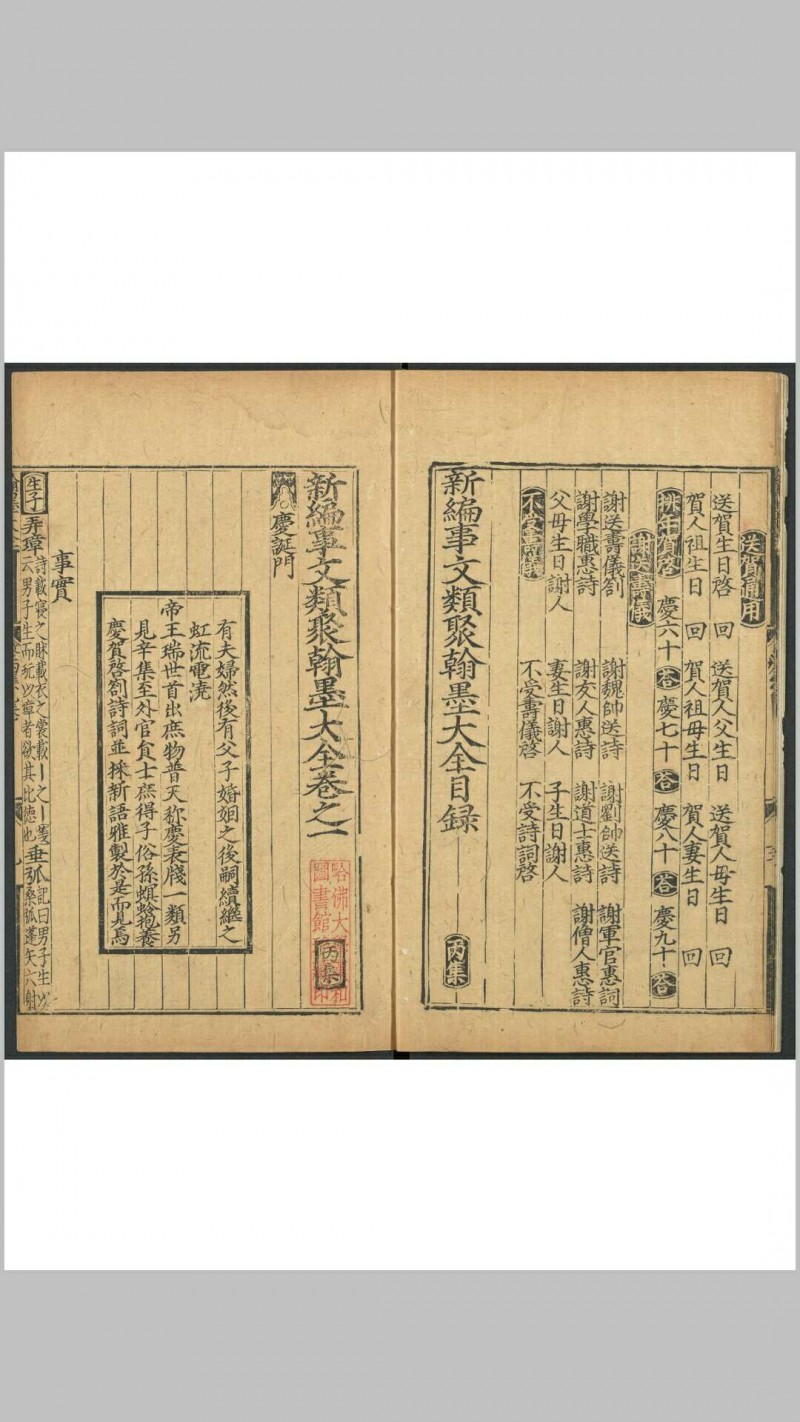 送賀通用
送賀生日啓 回 送賀人父生日 送賀人母生日 回
賀人祖生日 回 賀人祖母生日 賀人妻生日 回
慶六十 答 慶七十 答 慶八十 答 慶九十 答
謝送壽儀
謝送壽儀劄 謝魏帥送詩 謝劉帥送詩 謝軍官惠詞
謝學職惠詩 謝友人惠詩 謝道士惠詩 謝僧人惠詩
父母生日謝人 妻生日謝人 子生日謝人
不受壽儀 不受壽儀啓 不受詩詞啓
新編事文類聚翰墨大全目録 丙集
新編事文類聚翰墨大全卷之一 丙集
慶誕門
有夫婦然後有父子婚姻之後嗣續繼之
虹流電澆
帝王瑞世首出庶物普天称慶表牋一類另
見辛集至外官負士庶得子俗孫螟蛉抱養
慶賀啓劄詩詞並採新語雅製於是而見焉
事實
生子 弄璋 詩載寢之牀載衣之裳載丨之丨箋
云男子生而玩以璋者欲其比德也 垂弧 記曰男子生以
桑弧蓬矢六射
哈佛大
圖書館